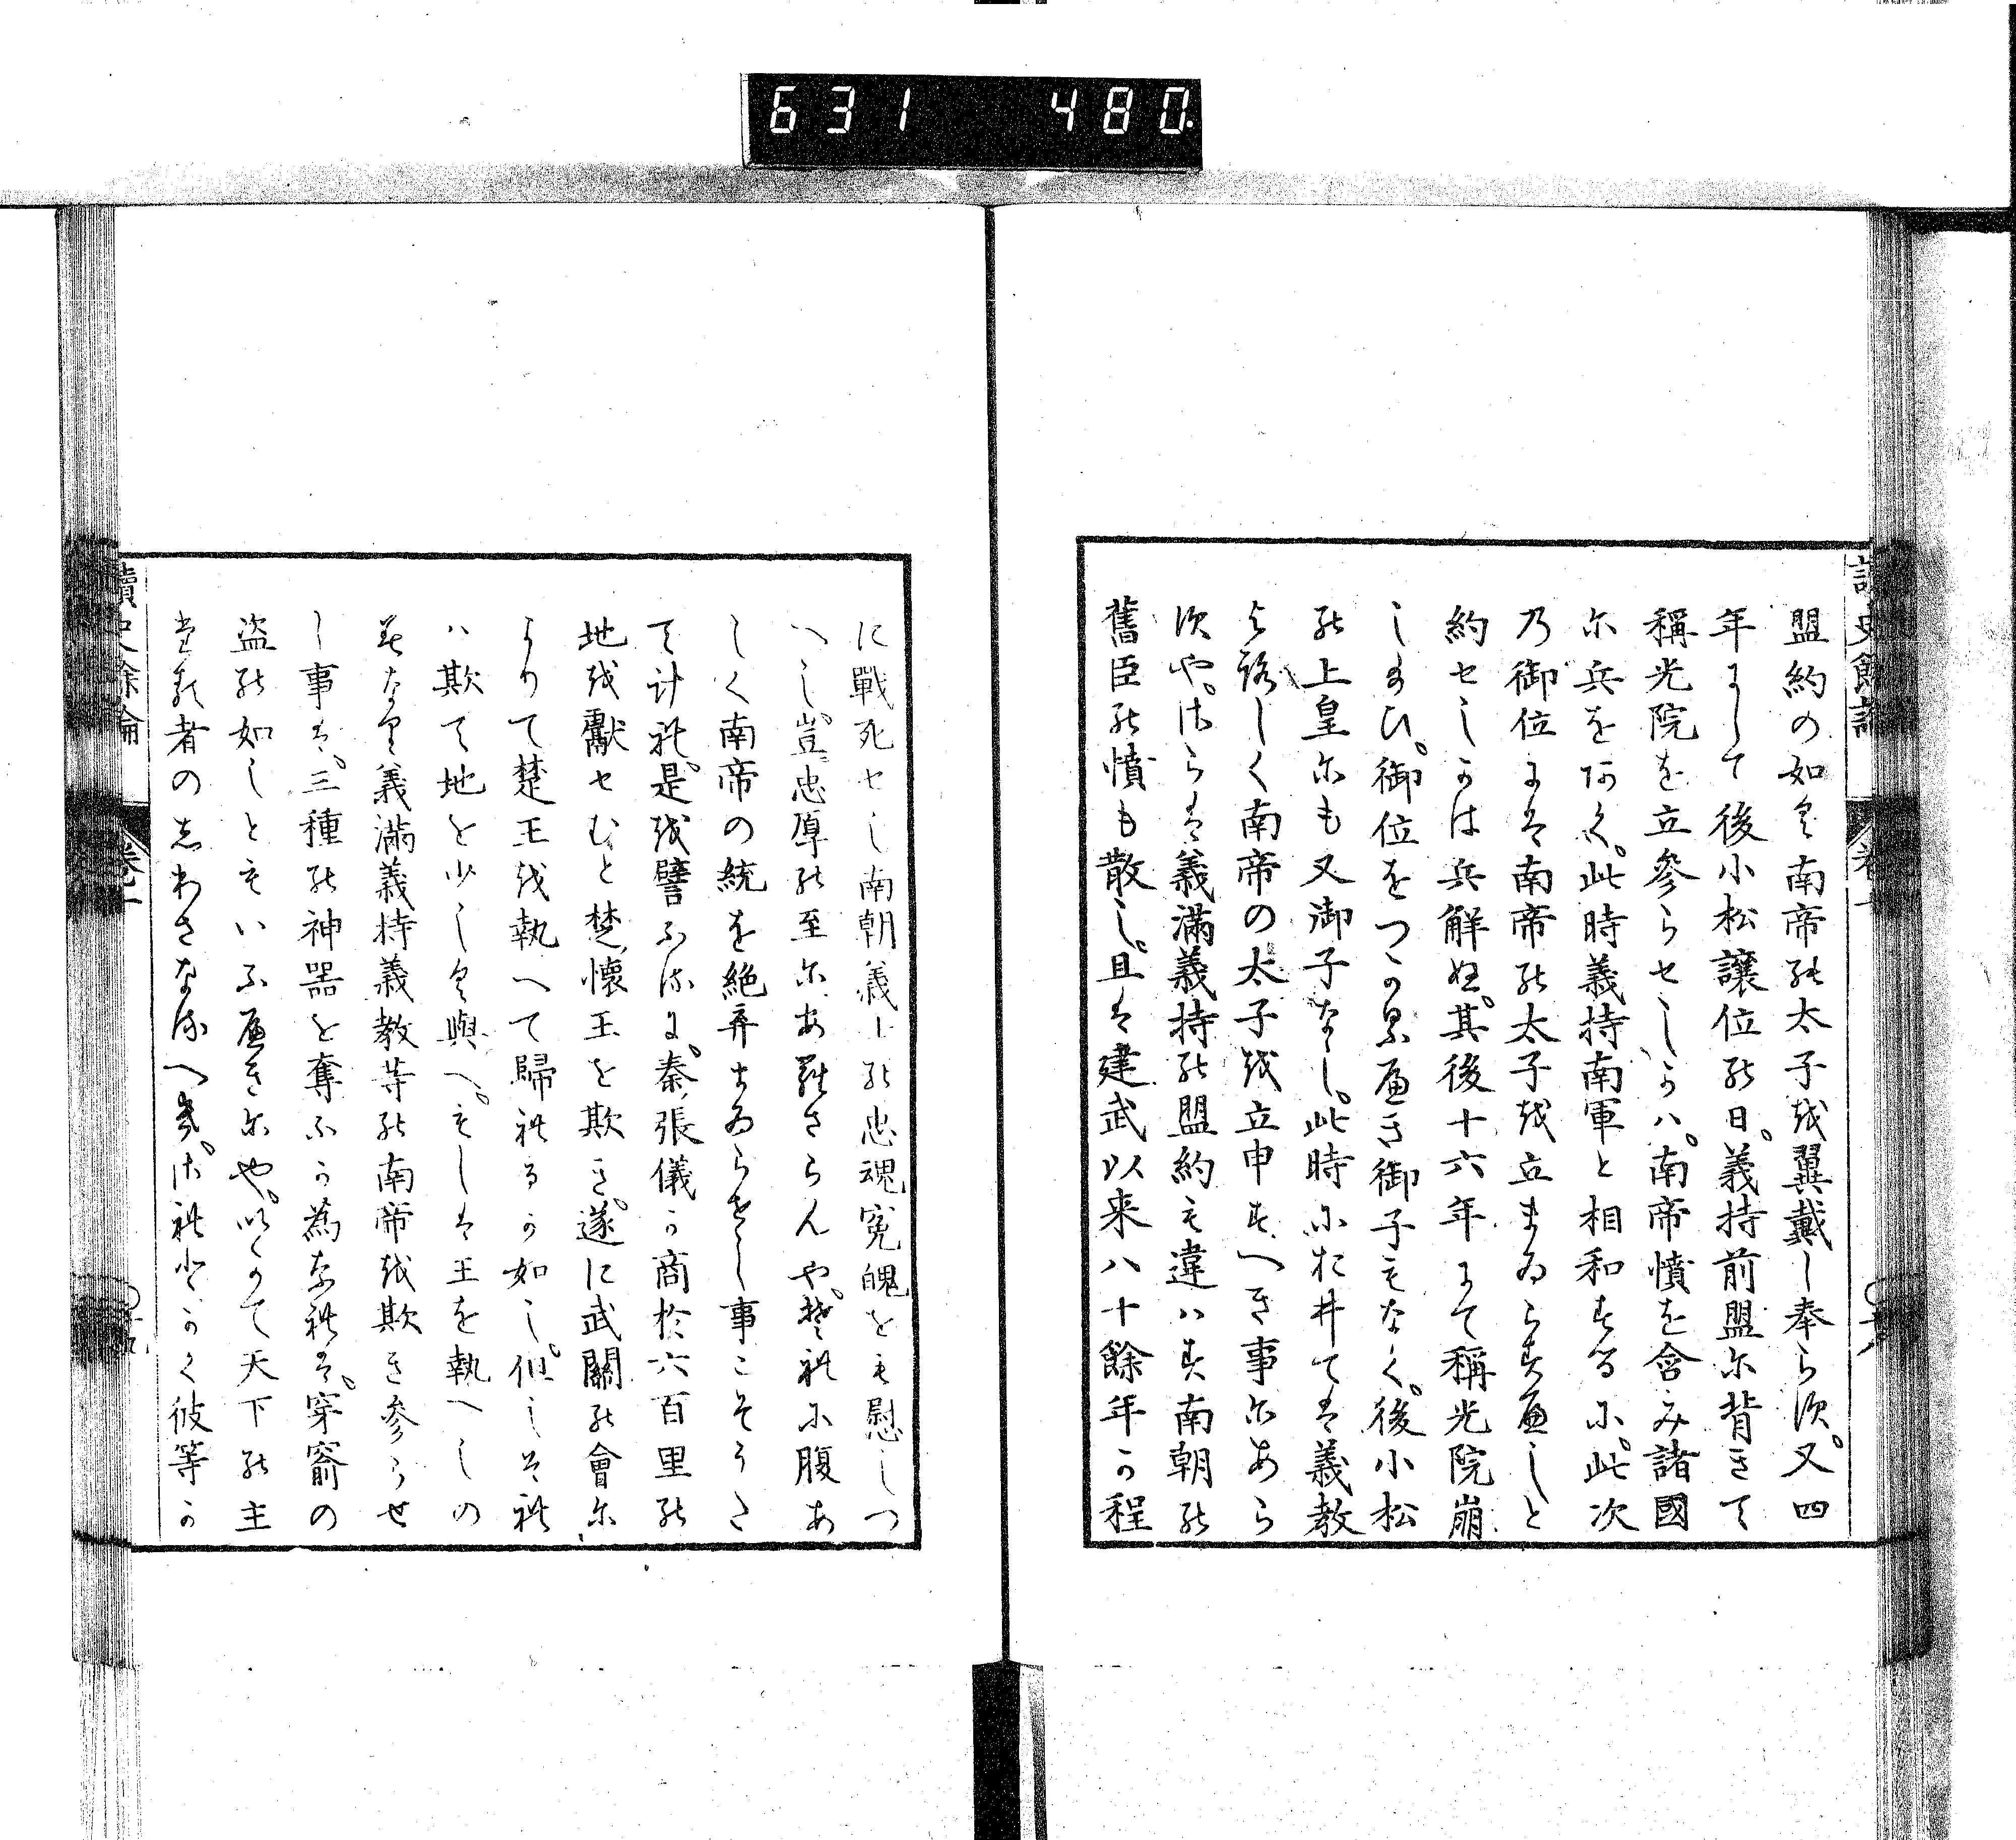 631 480
讀史餘論
卷一
盟約の如く南帝の太子を翼戴し奉らす。又四
年にして後小松讓位の日。義持前盟に背きて
稱光院を立參らせしかハ。南帝憤を含み諸國
に兵をおく。此時義持南軍と相和するに。此次
乃御位には南帝の太子を立まゐらすへしと
約セしかは兵解ぬ。其後十六年にて稱光院崩
しまひ。御位をつかるへき御子もなく。後小松
の上皇にも又御子なし。此時におゐては義教
よろしく南帝の太子を立申すへき事にあら
すや。さらは義滿義持の盟約も違ハす南朝の
舊臣の憤も散し。且は建武以来八十餘年か程
に戰死セし南朝義士の忠魂冤魄をも慰しつ
へし。豈忠厚の至にあらさらんや。それに腹あ
しく南帝の統を絶弃まゐらせし事こそうた
て計れ。是を譬ふるに。秦張儀か商於六百里の
地を獻セむと楚懷王を欺き。遂に武關の會に
よりて楚王を執へて歸れるか如し。但しそれ
ハ欺て地を少しく與へ。もしは王を執へしの
みなり義滿義持義教等の南帝を欺き參らせ
し事は。三種の神器を奪ふか為なれは。穿窬の
盜の如しともいふへきにや。いかて天下の主
たる者のしわさなるへき。されとかく彼等か
讀史餘論
卷一